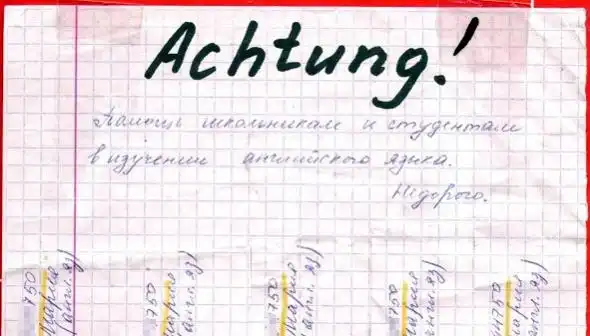 Achtung!
Помощь школьникам и студентам
в изучении английского языка.
Недорого.
750
Мария
(англ. яз)
750
Мария
(англ. яз)
750
Мария
(англ. яз)
750
Мария
(англ. яз)
750
Мария
(англ. яз)